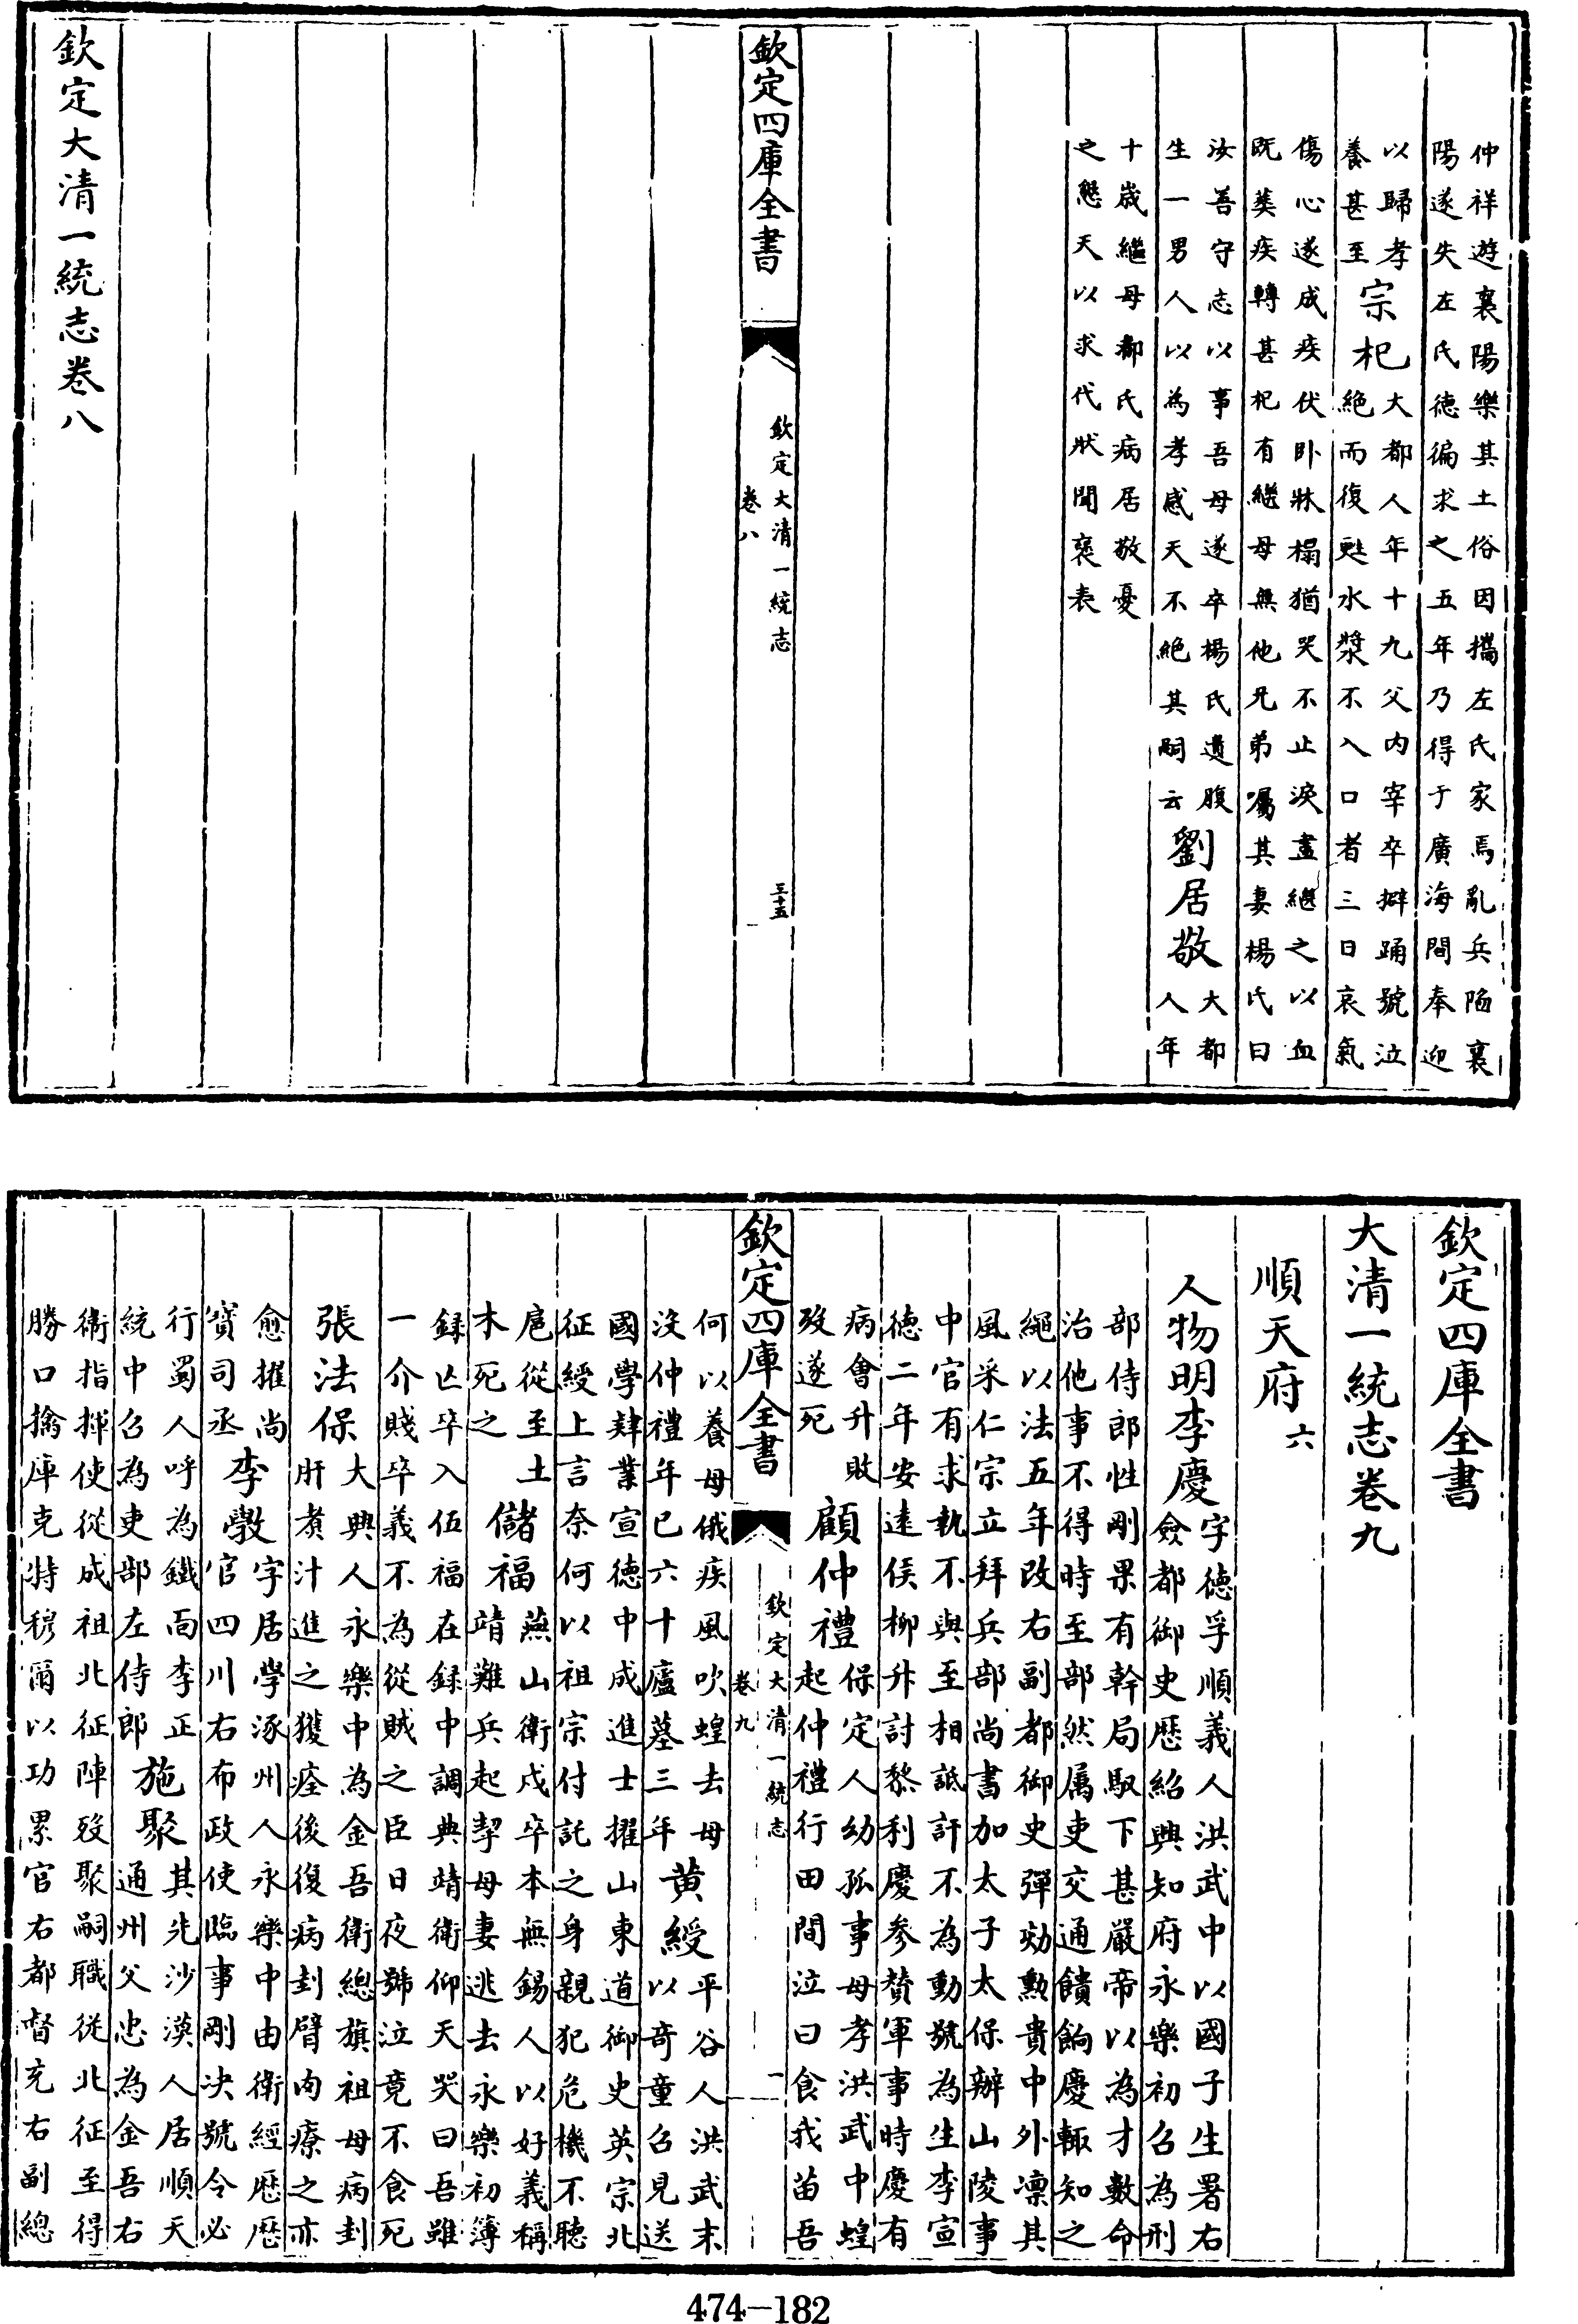 仲祥遊襄陽樂其土俗因攜左氏家焉亂兵陷襄
陽遂失左氏徳徧求之五年乃得于廣海間奉迎
以歸孝
養甚至
宗杞
大都人年十九父内宰卒擗踊號泣
絶而復甦水漿不入口者三日哀氣
傷心遂成疾伏卧牀榻猶哭不止淚盡繼之以血
既葬疾轉甚杞有繼母無他兄弟囑其妻楊氏曰
汝善守志以事吾母遂卒楊氏遺腹
生一男人以為孝感天不絶其嗣云
劉居敬
大都
人年
十歳繼母郝氏病居敬憂
之懇天以求代狀聞褒表
欽定四庫全書
欽定大清一統志
卷八
三十五
欽定大清一統志卷八
欽定四庫全書
大清一統志卷九
順天府六
人物明李慶
字徳孚順義人洪武中以國子生署右
僉都御史歴紹興知府永樂初召為刑
部侍郎性剛果有幹局馭下甚嚴帝以為才數命
治他事不得時至部然属吏交通饋餉慶輒知之
繩以法五年改右副都御史彈劾勲貴中外凛其
風采仁宗立拜兵部尚書加太子太保辦山陵事
中官有求執不與至相詆訐不為動號為生李宣
徳二年安遠侯柳升討黎利慶参賛軍事時慶有
病會升敗
歿遂死
顧仲禮
保定人幼孤事母孝洪武中蝗
起仲禮行田間泣曰食我苗吾
欽定四庫全書
欽定大清一統志
卷九
一
何以養母俄疾風吹蝗去母
沒仲禮年已六十廬墓三年
黄綬
平谷人洪武末
以竒童召見送
國學肄業宣徳中成進士擢山東道御史英宗北
征綬上言奈何以祖宗付託之身親犯危機不聽
扈從至土
木死之
儲福
燕山衛戍卒本無錫人以好義稱
靖難兵起挈母妻逃去永樂初簿
録亡卒入伍福在録中調典靖衛仰天哭曰吾雖
一介賤卒義不為從賊之臣日夜號泣竟不食死
張法保
大興人永樂中為金吾衛總旗祖母病刲
肝煮汁進之獲痊後復病刲臂肉療之亦
愈擢尚
寳司丞
李斆
字居學涿州人永樂中由衛經歴歴
官四川右布政使臨事剛决號令必
行蜀人呼為鐵面李正
統中召為吏部左侍郎
施聚
其先沙漠人居順天
通州父忠為金吾右
衛指揮使從成祖北征陣歿聚嗣職從北征至得
勝口擒庫克特穆爾以功累官右都督充右副總
474—182